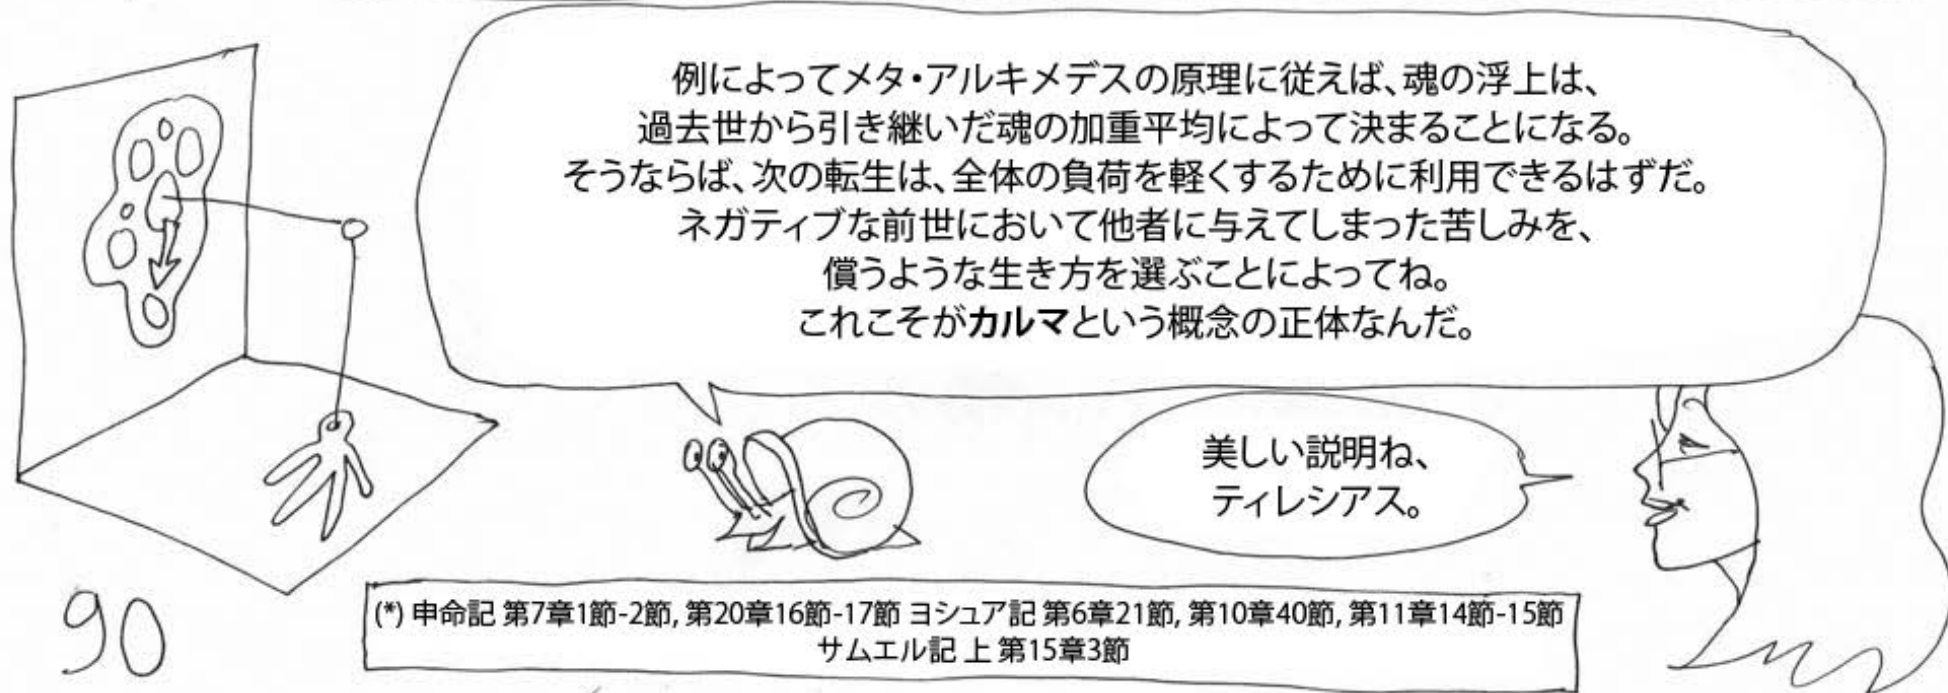 例によってメタ・アルキメデスの原理に従えば、魂の浮上は、
過去世から引き継いだ魂の加重平均によって決まることになる。
そうならば、次の転生は、全体の負荷を軽くするために利用できるはずだ。
ネガティブな前世において他者に与えてしまった苦しみを、
償うような生き方を選ぶことによってね。
これこそがカルマという概念の正体なんだ。
美しい説明ね、
ティレシアス。
(*) 申命記 第7章1節-2節, 第20章16節-17節 ヨシュア記 第6章21節, 第10章40節, 第11章14節-15節
サムエル記 上 第15章3節
90